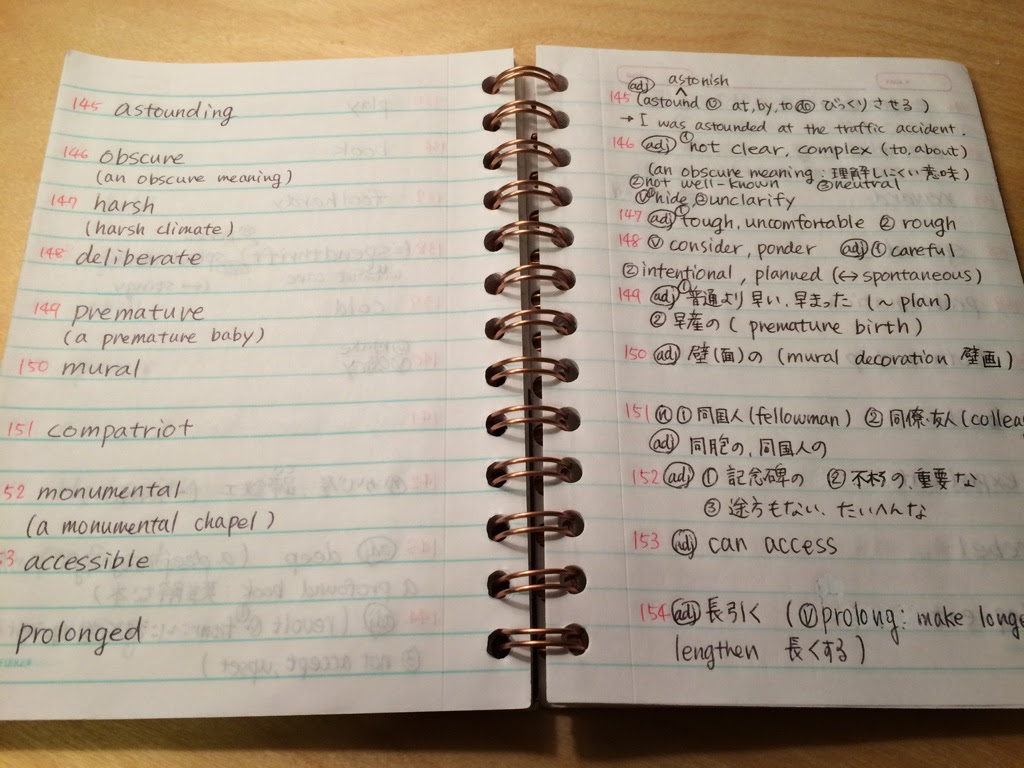 145 astounding
146 obscure
(an obscure meaning)
147 harsh
(harsh climate)
148 deliberate
149 premature
(a premature baby)
150 mural
151 compatriot
52 monumental
(a monumental chapel)
53 accessible
prolonged
adj astonish
145 (astound Ⓥ at, by, to do びっくりさせる)
→ I was astounded at the traffic accident.
146 adj ① not clear, complex (to, about)
(an obscure meaning : 理解しにくい意味)
② not well-known ③ neutral
Ⓥ ① hide, ② unclarify
147 adj ① tough, uncomfortable ② rough
148 Ⓥ consider, ponder adj ① careful
② intentional, planned (↔ spontaneous)
149 adj ① 普通より早い、早まった (~ plan)
② 早産の ( premature birth )
150 adj 壁(面)の (mural decoration 壁画)
151 ⓝ ① 同国人 (fellowman) ② 同僚・友人 (collea
adj 同胞の、同国人の
152 adj ① 記念碑の ② 不朽の、重要な
③ 途方もない、たいへんな
153 adj can access
154 adj 長引く (Ⓥ prolong : make longe
lengthen 長くする)